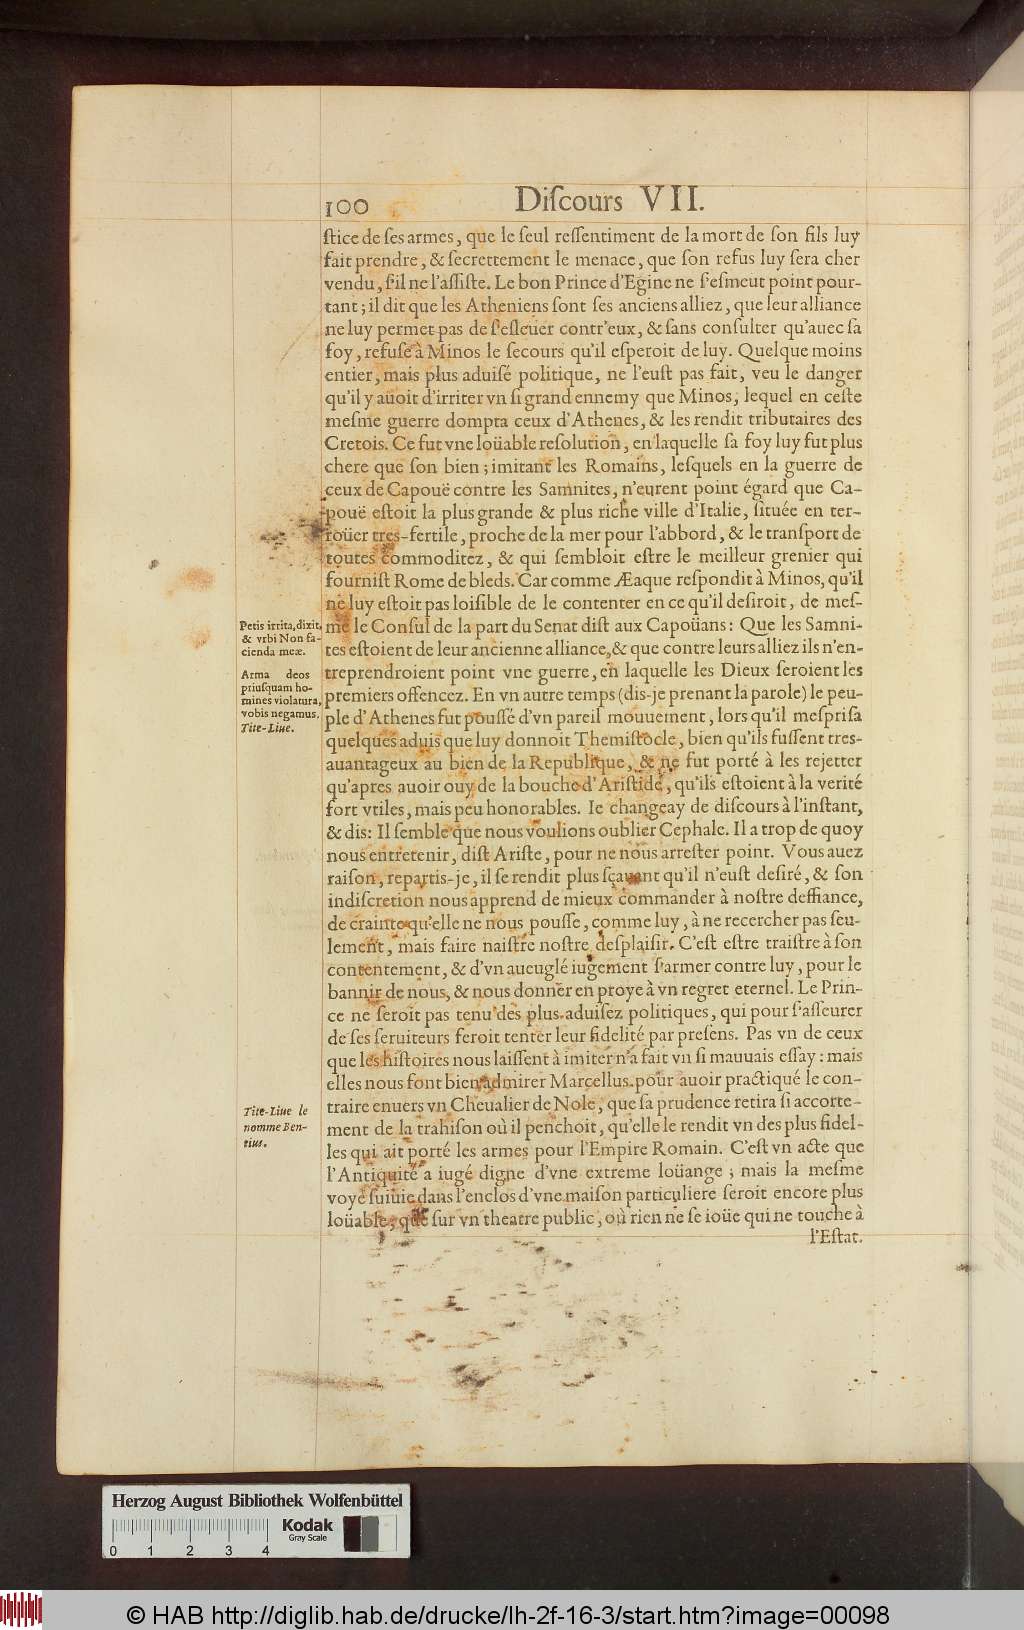 100
Diſcours VII.
ſtice de ſes armes, que le ſeul reſſentiment de la mort de ſon fils luy
fait prendre, & ſecrettement le menace, que ſon refus luy ſera cher
vendu, ſ'il ne l'aſſiſte. Le bon Prince d'Egine ne ſ'eſmeut point pour-
tant; il dit que les Atheniens ſont ſes anciens alliez, que leur alliance
ne luy permet pas de ſ'eſleuer contr'eux, & ſans conſulter qu'auec ſa
foy, refuſe à Minos le ſecours qu'il eſperoit de luy. Quelque moins
entier, mais plus aduiſé politique, ne l'euſt pas fait, veu le danger
qu'il y auoit d'irriter vn ſi grand ennemy que Minos, lequel en ceſte
meſme guerre dompta ceux d'Athenes, & les rendit tributaires des
Cretois. Ce fut vne loüable reſolution, en laquelle ſa foy luy fut plus
chere que ſon bien; imitant les Romains, leſquels en la guerre de
ceux de Capouë contre les Samnites, n'eurent point égard que Ca-
pouë eſtoit la plus grande & plus riche ville d'Italie, ſituée en ter-
roüer tres-fertile, proche de la mer pour l'abbord, & le tranſport de
toutes commoditez, & qui ſembloit eſtre le meilleur grenier qui
fourniſt Rome de bleds. Car comme Æaque reſpondit à Minos, qu'il
ne luy eſtoit pas loiſible de le contenter en ce qu'il deſiroit, de meſ-
me le Conſul de la part du Senat diſt aux Capoüans: Que les Samni-
tes eſtoient de leur ancienne alliance, & que contre leurs alliez ils n'en-
treprendroient point vne guerre, en laquelle les Dieux ſeroient les
premiers offencez. En vn autre temps (dis-je prenant la parole) le peu-
ple d'Athenes fut pouſſé d'vn pareil mouuement, lors qu'il meſpriſa
quelques aduis que luy donnoit Themiſtocle, bien qu'ils fuſſent tres-
auantageux au bien de la Republique, & ne fut porté à les rejetter
qu'apres auoir ouy de la bouche d'Ariſtide, qu'ils eſtoient à la verité
fort vtiles, mais peu honorables. Ie changeay de diſcours à l'inſtant,
& dis: Il ſemble que nous voulions oublier Cephale. Il a trop de quoy
nous entretenir, diſt Ariſte, pour ne nous arreſter point. Vous auez
raiſon, repartis-je, il ſe rendit plus ſçauant qu'il n'euſt deſiré, & ſon
indiſcretion nous apprend de mieux commander à noſtre deffiance,
de crainte qu'elle ne nous pouſſe, comme luy, à ne recercher pas ſeu-
lement, mais faire naiſtre noſtre deſplaiſir. C'eſt eſtre traiſtre à ſon
contentement, & d'vn aueuglé iugement ſ'armer contre luy, pour le
bannir de nous, & nous donner en proye à vn regret eternel. Le Prin-
ce ne ſeroit pas tenu des plus aduiſez politiques, qui pour ſ'aſſeurer
de ſes ſeruiteurs feroit tenter leur fidelité par preſens. Pas vn de ceux
que les hiſtoires nous laiſſent à imiter n'a fait vn ſi mauuais eſſay: mais
elles nous font bien admirer Marcellus pour auoir practiqué le con-
traire enuers vn Cheualier de Nole, que ſa prudence retira ſi accorte-
ment de la trahiſon où il penchoit, qu'elle le rendit vn des plus fidel-
les qui ait porté les armes pour l'Empire Romain. C'eſt vn acte que
l'Antiquité a iugé digne d'vne extreme loüange; mais la meſme
voye ſuiuie dans l'enclos d'vne maiſon particuliere ſeroit encore plus
loüable, que ſur vn theatre public, où rien ne ſe ioüe qui ne touche à
l'Eſtat.
Petis irrita, dixit,
& vrbi Non fa-
cienda meæ.
Arma deos
priuſquam ho-
mines violatura,
vobis negamus.
Tite-Liue.
Tite-Liue le
nomme Ben-
tius.
Herzog August Bibliothek Wolfenbüttel
Kodak
Gray Scale
0 1 2 3 4
© HAB http://diglib.hab.de/drucke/lh-2f-16-3/start.htm?image=00098